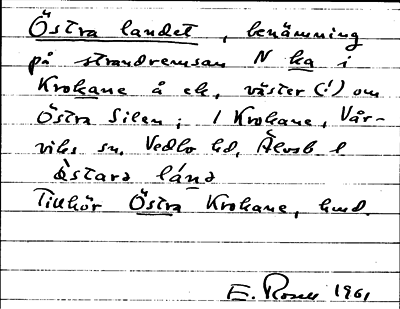 Östra landet, benämning
på strandremsan N ka i
Krokane å ek, väster (!) om
Östra Silen; 1 Krokane, Vår-
viks sn, Vedbo hd, Älvsb l
östara lánd
Tillhör Östra Krokane, hmd.
E. Rosell 1961